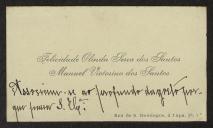 Felicidade Olinda Seira dos Santos
Manuel Victorino dos Santos
Associam-se ao profundo desgosto por
que passa S. Exª.
Rua de S. Domingos, á Lapa,